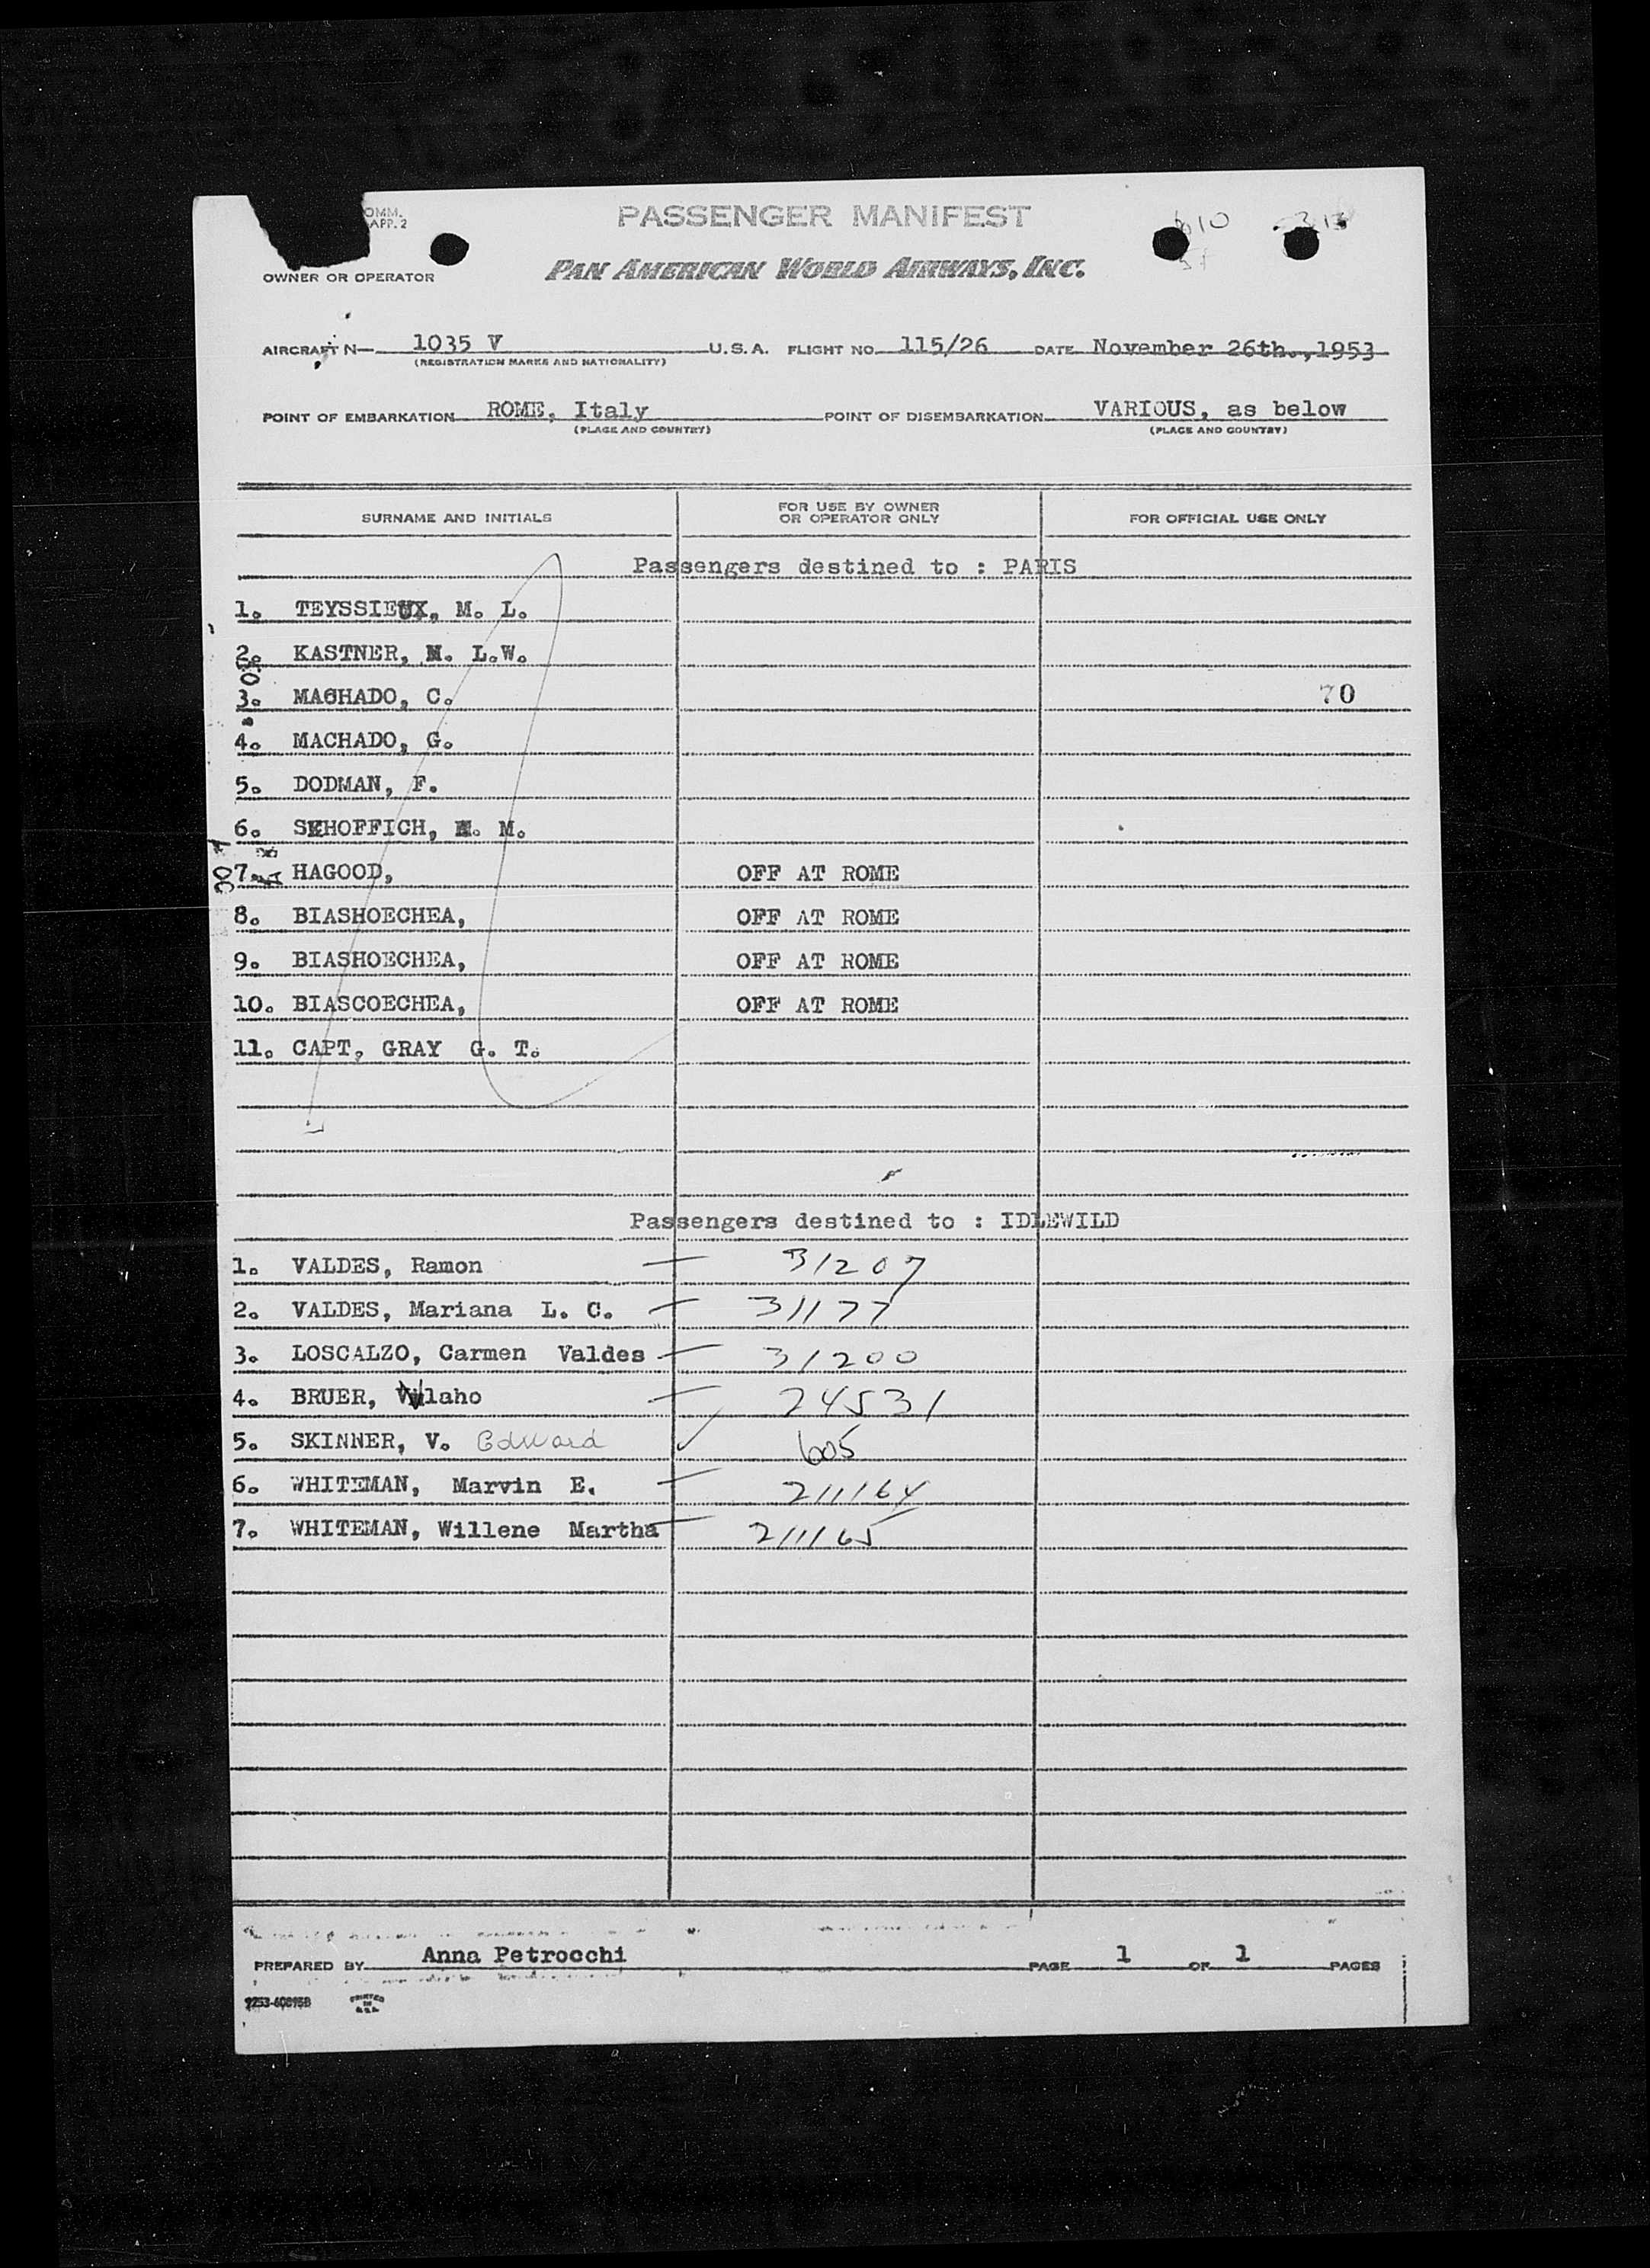 OMM.
APP. 2
PASSENGER MANIFEST
PAN AMERICAN WORLD AIRWAYS, INC.
OWNER OR OPERATOR
AIRCRAFT N— 1035 V U.S.A. FLIGHT NO. 115/26 DATE November 26th.,1953
(REGISTRATION MARKS AND NATIONALITY)
POINT OF EMBARKATION ROME, Italy POINT OF DISEMBARKATION VARIOUS, as below
(PLACE AND COUNTRY) (PLACE AND COUNTRY)
SURNAME AND INITIALS FOR USE BY OWNER OR OPERATOR ONLY FOR OFFICIAL USE ONLY
Passengers destined to : PARIS
1. TEYSSIEUX, M. L.
2. KASTNER, M. L.W.
3. MACHADO, C. 70
4. MACHADO, G.
5. DODMAN, F.
6. SEHOFFICH, M.
7. HAGOOD, OFF AT ROME
8. BIASHOECHEA, OFF AT ROME
9. BIASHOECHEA, OFF AT ROME
10. BIASCOECHEA, OFF AT ROME
11. CAPT, GRAY G. T.
Passengers destined to : IDLEWILD
1. VALDES, Ramon — 31207
2. VALDES, Mariana L. C. — 31177
3. LOSCALZO, Carmen Valdes — 31200
4. BRUER, Vlaho — 24531
5. SKINNER, V. Edward ✓ 605
6. WHITEMAN, Marvin E. — 211164
7. WHITEMAN, Willene Martha — 211165
PREPARED BY Anna Petrocchi PAGE 1 OF 1 PAGES
PRINTED IN U.S.A.